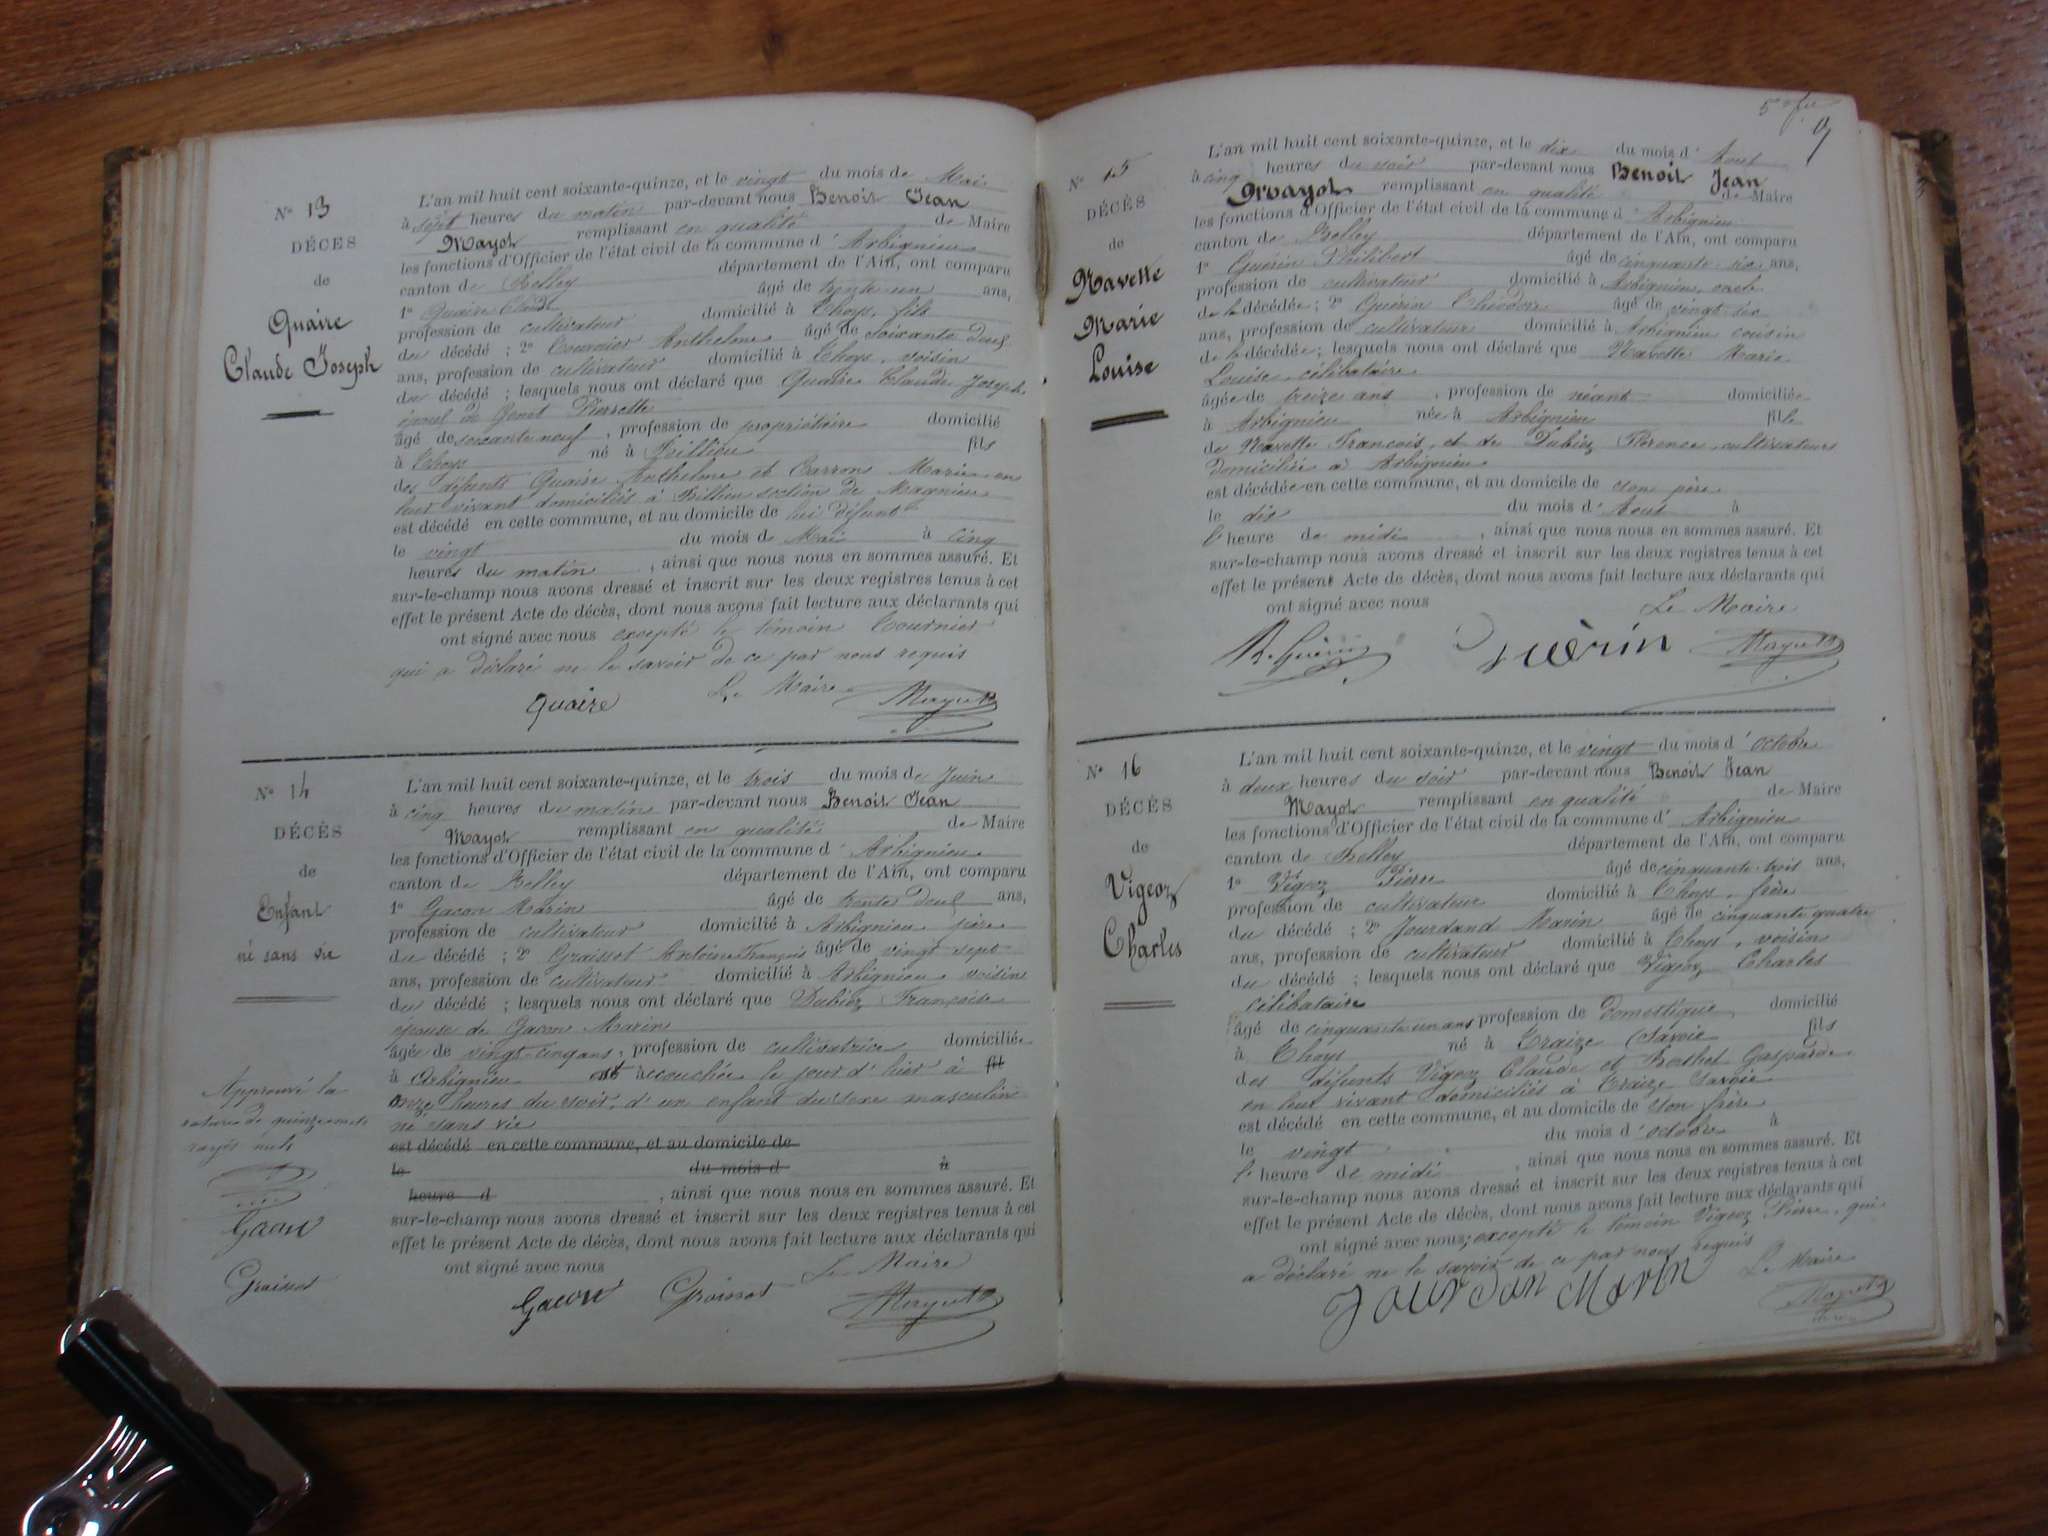 N° 13
DÉCÈS
de
Quaire
Claude Joseph
L'an mil huit cent soixante-quinze, et le vingt du mois de Mai
à sept heures du matin par-devant nous Benoit Jean
Mayot remplissant en qualité de Maire
les fonctions d'Officier de l'état civil de la commune d' Arbignieu
canton de Belley département de l'Ain, ont comparu
1° Quaire Claude âgé de trente un ans,
profession de cultivateur domicilié à Thoys, fils
du décédé ; 2° Tournier Anthelme âgé de soixante deux
ans, profession de cultivateur domicilié à Thoys, voisin
du décédé ; lesquels nous ont déclaré que Quaire Claude Joseph
époux de Benoit Pierrette
âgé de soixante neuf, profession de propriétaire domicilié
à Thoys né à Brillieu fils
des défunts Quaire Anthelme et Carron Marie en
leur vivant domiciliés à section de Magnieu
est décédé en cette commune, et au domicile de lui défunt
le vingt du mois de Mai à cinq
heures du matin, ainsi que nous nous en sommes assuré. Et
sur-le-champ nous avons dressé et inscrit sur les deux registres tenus à cet
effet le présent Acte de décès, dont nous avons fait lecture aux déclarants qui
ont signé avec nous excepté le témoin Tournier
qui a déclaré ne le savoir de ce par nous requis
Quaire Le Maire Mayot
N° 14
DÉCÈS
de
Enfant
né sans vie
Approuvé la
rature de quinze mots
rayés nuls
Gacon
Graisset
L'an mil huit cent soixante-quinze, et le trois du mois de Juin
à cinq heures du matin par-devant nous Benoit Jean
Mayot remplissant en qualité de Maire
les fonctions d'Officier de l'état civil de la commune d' Arbignieu
canton de Belley département de l'Ain, ont comparu
1° Gacon Marin âgé de trente deux ans,
profession de cultivateur domicilié à Arbignieu père
du décédé ; 2° Graisset Antoine François âgé de vingt sept
ans, profession de cultivateur domicilié à Arbignieu voisin
du décédé ; lesquels nous ont déclaré que Dubiez Françoise
épouse de Gacon Marin
âgée de vingt-cinq ans, profession de cultivatrice domiciliée
à Arbignieu est accouchée le jour d'hier à fil
onze heures du soir, d'un enfant du sexe masculin
né sans vie
est décédé en cette commune, et au domicile de
le du mois d à
heure d , ainsi que nous nous en sommes assuré. Et
sur-le-champ nous avons dressé et inscrit sur les deux registres tenus à cet
effet le présent Acte de décès, dont nous avons fait lecture aux déclarants qui
ont signé avec nous Le Maire
Gacon Graisset Mayot
N° 15
DÉCÈS
de
Navette
Marie
Louise
L'an mil huit cent soixante-quinze, et le dix du mois d' Aout
à cinq heures du soir par-devant nous Benoit Jean
Mayot remplissant en qualité de Maire
les fonctions d'Officier de l'état civil de la commune d' Arbignieu
canton de Belley département de l'Ain, ont comparu
1° Guérin Philibert âgé de cinquante six ans,
profession de cultivateur domicilié à Arbignieu, oncle
de la décédée ; 2° Guérin Théodore âgé de vingt six
ans, profession de cultivateur domicilié à Arbignieu cousin
de la décédée ; lesquels nous ont déclaré que Navette Marie
Louise, célibataire
âgée de treize ans, profession de néant domiciliée
à Arbignieu née à Arbignieu fille
de Navette François, et de Dubiez Florence, cultivateurs
domiciliés à Arbignieu
est décédée en cette commune, et au domicile de son père
le dix du mois d' Aout à
l'heure de midi, ainsi que nous nous en sommes assuré. Et
sur-le-champ nous avons dressé et inscrit sur les deux registres tenus à cet
effet le présent Acte de décès, dont nous avons fait lecture aux déclarants qui
ont signé avec nous Le Maire
Guérin Guèrin Mayot
N° 16
DÉCÈS
de
Vigeoz
Charles
L'an mil huit cent soixante-quinze, et le vingt du mois d' octobre
à deux heures du soir par-devant nous Benoit Jean
Mayot remplissant en qualité de Maire
les fonctions d'Officier de l'état civil de la commune d' Arbignieu
canton de Belley département de l'Ain, ont comparu
1° Vigeoz Pierre âgé de cinquante-trois ans,
profession de cultivateur domicilié à Thoys, frère
du décédé ; 2° Jourdand Marin âgé de cinquante quatre
ans, profession de cultivateur domicilié à Thoys, voisin
du décédé ; lesquels nous ont déclaré que Vigeoz Charles
célibataire
âgé de cinquante un ans profession de domestique domicilié
à Thoys né à Traize Savoie fils
des défunts Vigeoz Claude et Berthet Gasparde
en leur vivant domiciliés à Traize Savoie
est décédé en cette commune, et au domicile de son frère
le vingt du mois d' octobre à
l'heure de midi, ainsi que nous nous en sommes assuré. Et
sur-le-champ nous avons dressé et inscrit sur les deux registres tenus à cet
effet le présent Acte de décès, dont nous avons fait lecture aux déclarants qui
ont signé avec nous, excepté le témoin Vigeoz Pierre, qui
a déclaré ne le savoir de ce par nous requis
Le Maire
Jourdan Marin Mayot